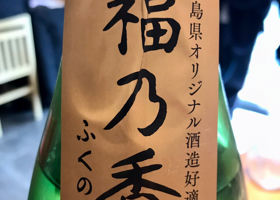 島県オリジナル酒造好適
福乃香
ふくの